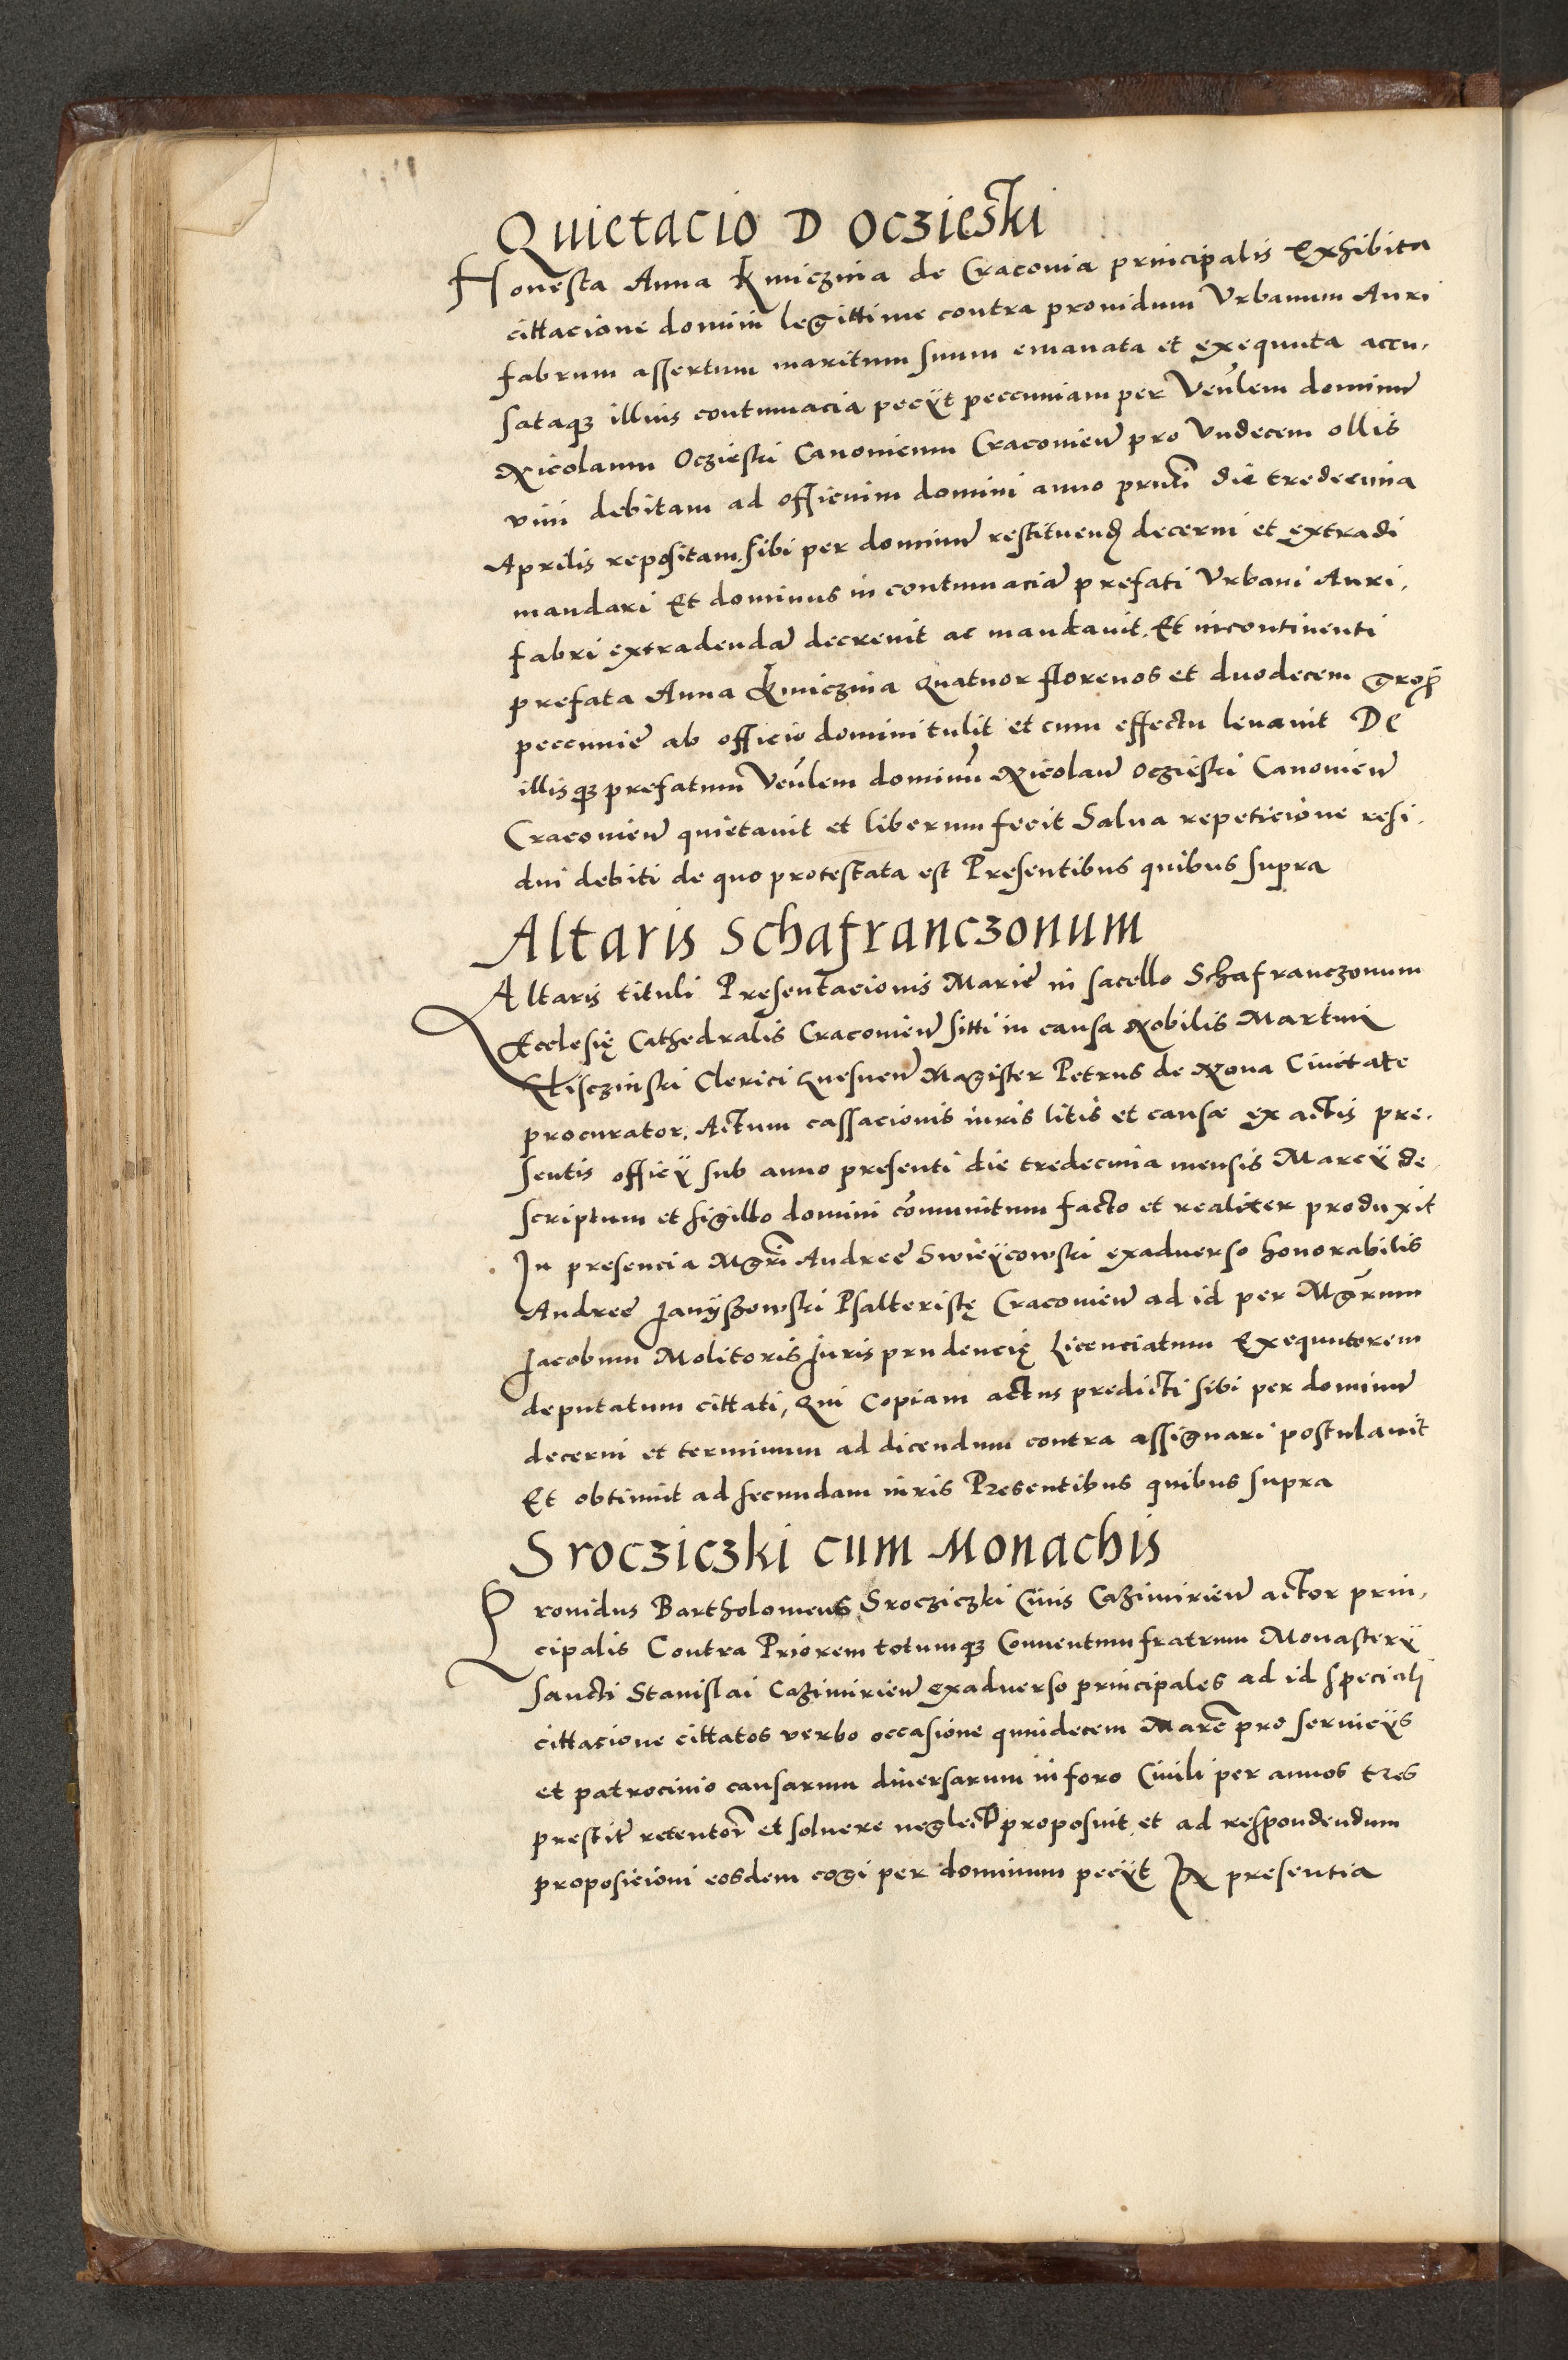 Quietacio D Oczieski
Honesta Anna Kmiczina de Cracovia principalis Exhibita
cittacione domini legittime contra providum Urbanum Auri
fabrum assertum maritum suum emanata et exequuta accu,
sataqȝ illius contumacia peciit peccuniam per Venlem dominū
Nicolaum Oczieski Canonicum Cracovien̄ pro Undecem ollis
vini debitam ad officium domini anno prnti die tredecima
Aprilis repositam, sibi per dominū restituend decerni et extradi
mandari Et dominus in contumaciā prefati Urbani Auri,
fabri extradendā decrevit ac mandavit. Et incontinenti
prefata Anna Kmiczina quatuor florenos et duodecem gross
peccunie ab officio domini tulit et cum effectu levavit De
illisqȝ prefatum Venlem dominū Nicolaū Oczieski Canonicū
Cracovien̄ quietavit et liberum fecit Salva repeticione resi,
dui debiti de quo protestata est Presentibus quibus supra
Altaris Schafranczonum
Altaris tituli Presentacionis Marie in sacello Schafranczonum
Ecclesię Cathedralis Cracovien̄ sitti in causa Nobilis Martini
Clerici Gnesnen̄ Magister Petrus de Nova Civitate
procurator. Actum cassacionis iuris litis et causæ ex actis pre,
sentis officii sub anno presenti die tredecima mensis Marcii de
scriptum et sigillo domini cōmunitum facto et realiter produxit
In presencia Mgri Andree Swieycowski exadverso honorabilis
Andree Janyszowski Psalteristę Cracovien̄ ad id per Mgrum
Jacobum Molitoris Juris prudencię Licenciatum Exequutorem
deputatum cittati, qui Copiam actus predicti sibi per dominū
decerni et terminum ad dicendum contra assignari postulavit
Et obtinuit ad secundam iuris Presentibus quibus supra
Srocziczki cum Monachis
Providus Bartholomeus Srocziczki Civis Cazimirien̄ actor prin,
cipalis Contra Priorem totumqȝ Conventum fratrum Monasterii
Sancti Stanislai Cazimirien̄ exadverso principales ad id speciali
cittacione cittatos verbo occasione quindecem Marc pro serviciis
et patrocinio causarum diversarum in foro Civili per annos tres
prestit retentor et solvere neglect proposuit, et ad respondendum
proposicioni eosdem cogi per dominum peciit In presentia